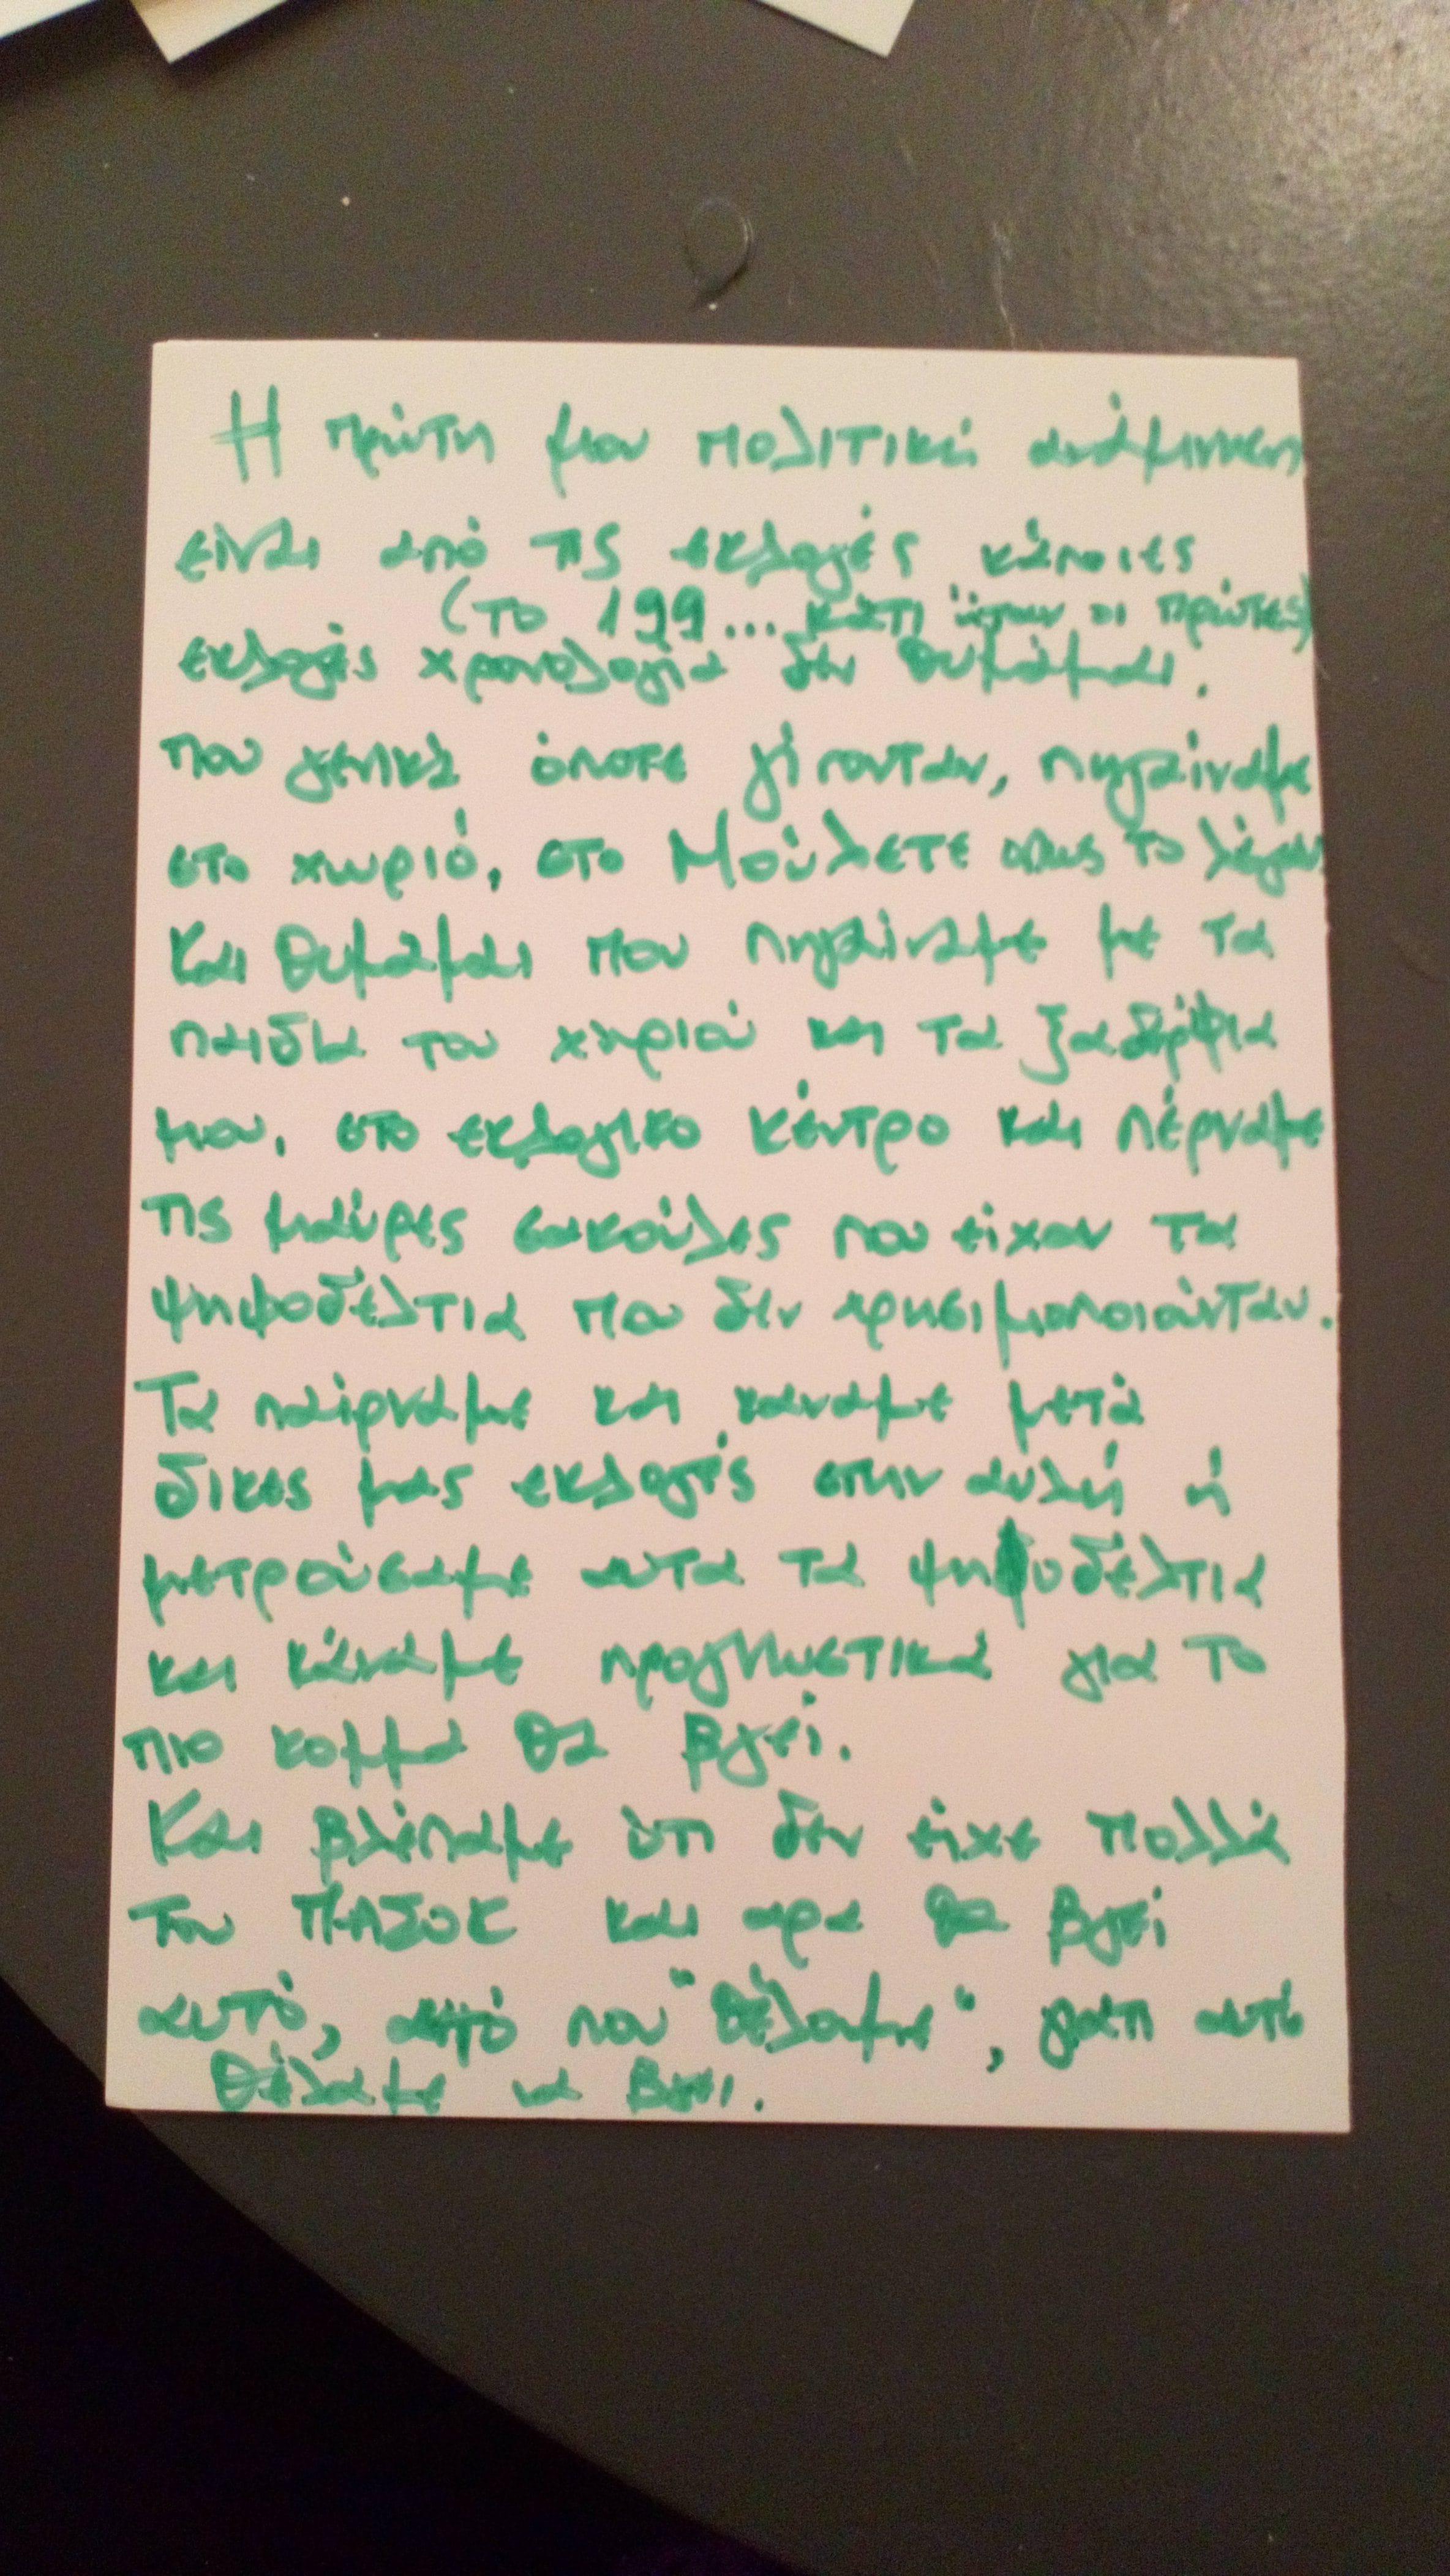 Η πρώτη μου πολιτική ανάμνηση
είναι από τις εκλογές κάποιες
(το 199... κάτι ήταν οι πρώτες)
εκλογές χρονολογία δεν θυμάμαι.
που γενικά όποτε γίνονταν, πηγαίναμε
στο χωριό, στο Μούλετε όπως το λέγαν
Και θυμάμαι που πηγαίναμε με τα
παιδια του χωριού και τα ξαδέρφια
μου, στο εκλογικο κέντρο και πέρναμε
τις μαύρες σακούλες που είχαν τα
ψηφοδέλτια που δεν χρησιμοποιούνταν.
Τα παίρναμε και κάναμε μετά
δικες μας εκλογές στην αυλή ή
μετρούσαμε αυτα τα ψηφοδέλτια
και κάναμε προγνωστικά για το
πιο κομμα θα βγεί.
Και βλέπαμε ότι δεν είχε πολλά
του ΠΑΣΟΚ και αρα θα βγεί
αυτό, αυτό που "θέλαμε", γιατι αυτό
θέλαμε να βγει.